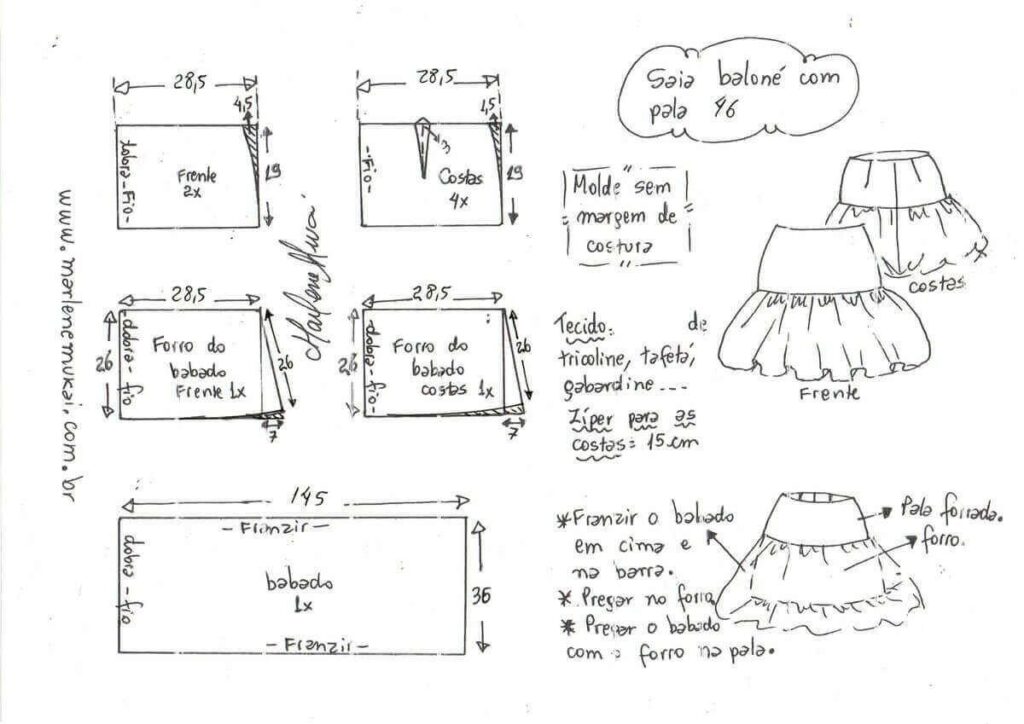 Saia baloné com
pala 46
28,5
4,5
19
dobra-Fio-
Frente
2x
28,5
1,5
3
19
-Fio-
Costas
4x
Molde sem
margem de
costura
costas
Frente
www.marlenemukai.com.br
Marlene Mukai
28,5
26
dobra-fio
Forro do
babado
Frente 1x
26
7
28,5
26
dobra-fio-
Forro do
babado
costas 1x
26
7
Tecido: de
tricoline, tafetá,
gabardine....
Zíper para as
costas= 15cm
145
-Franzir-
dobra-fio
babado
1x
36
-Franzir-
*Franzir o babado
em cima e
na barra.
* Pregar no forro
* Pregar o babado
com o forro na pala.
Pala forrada.
forro.